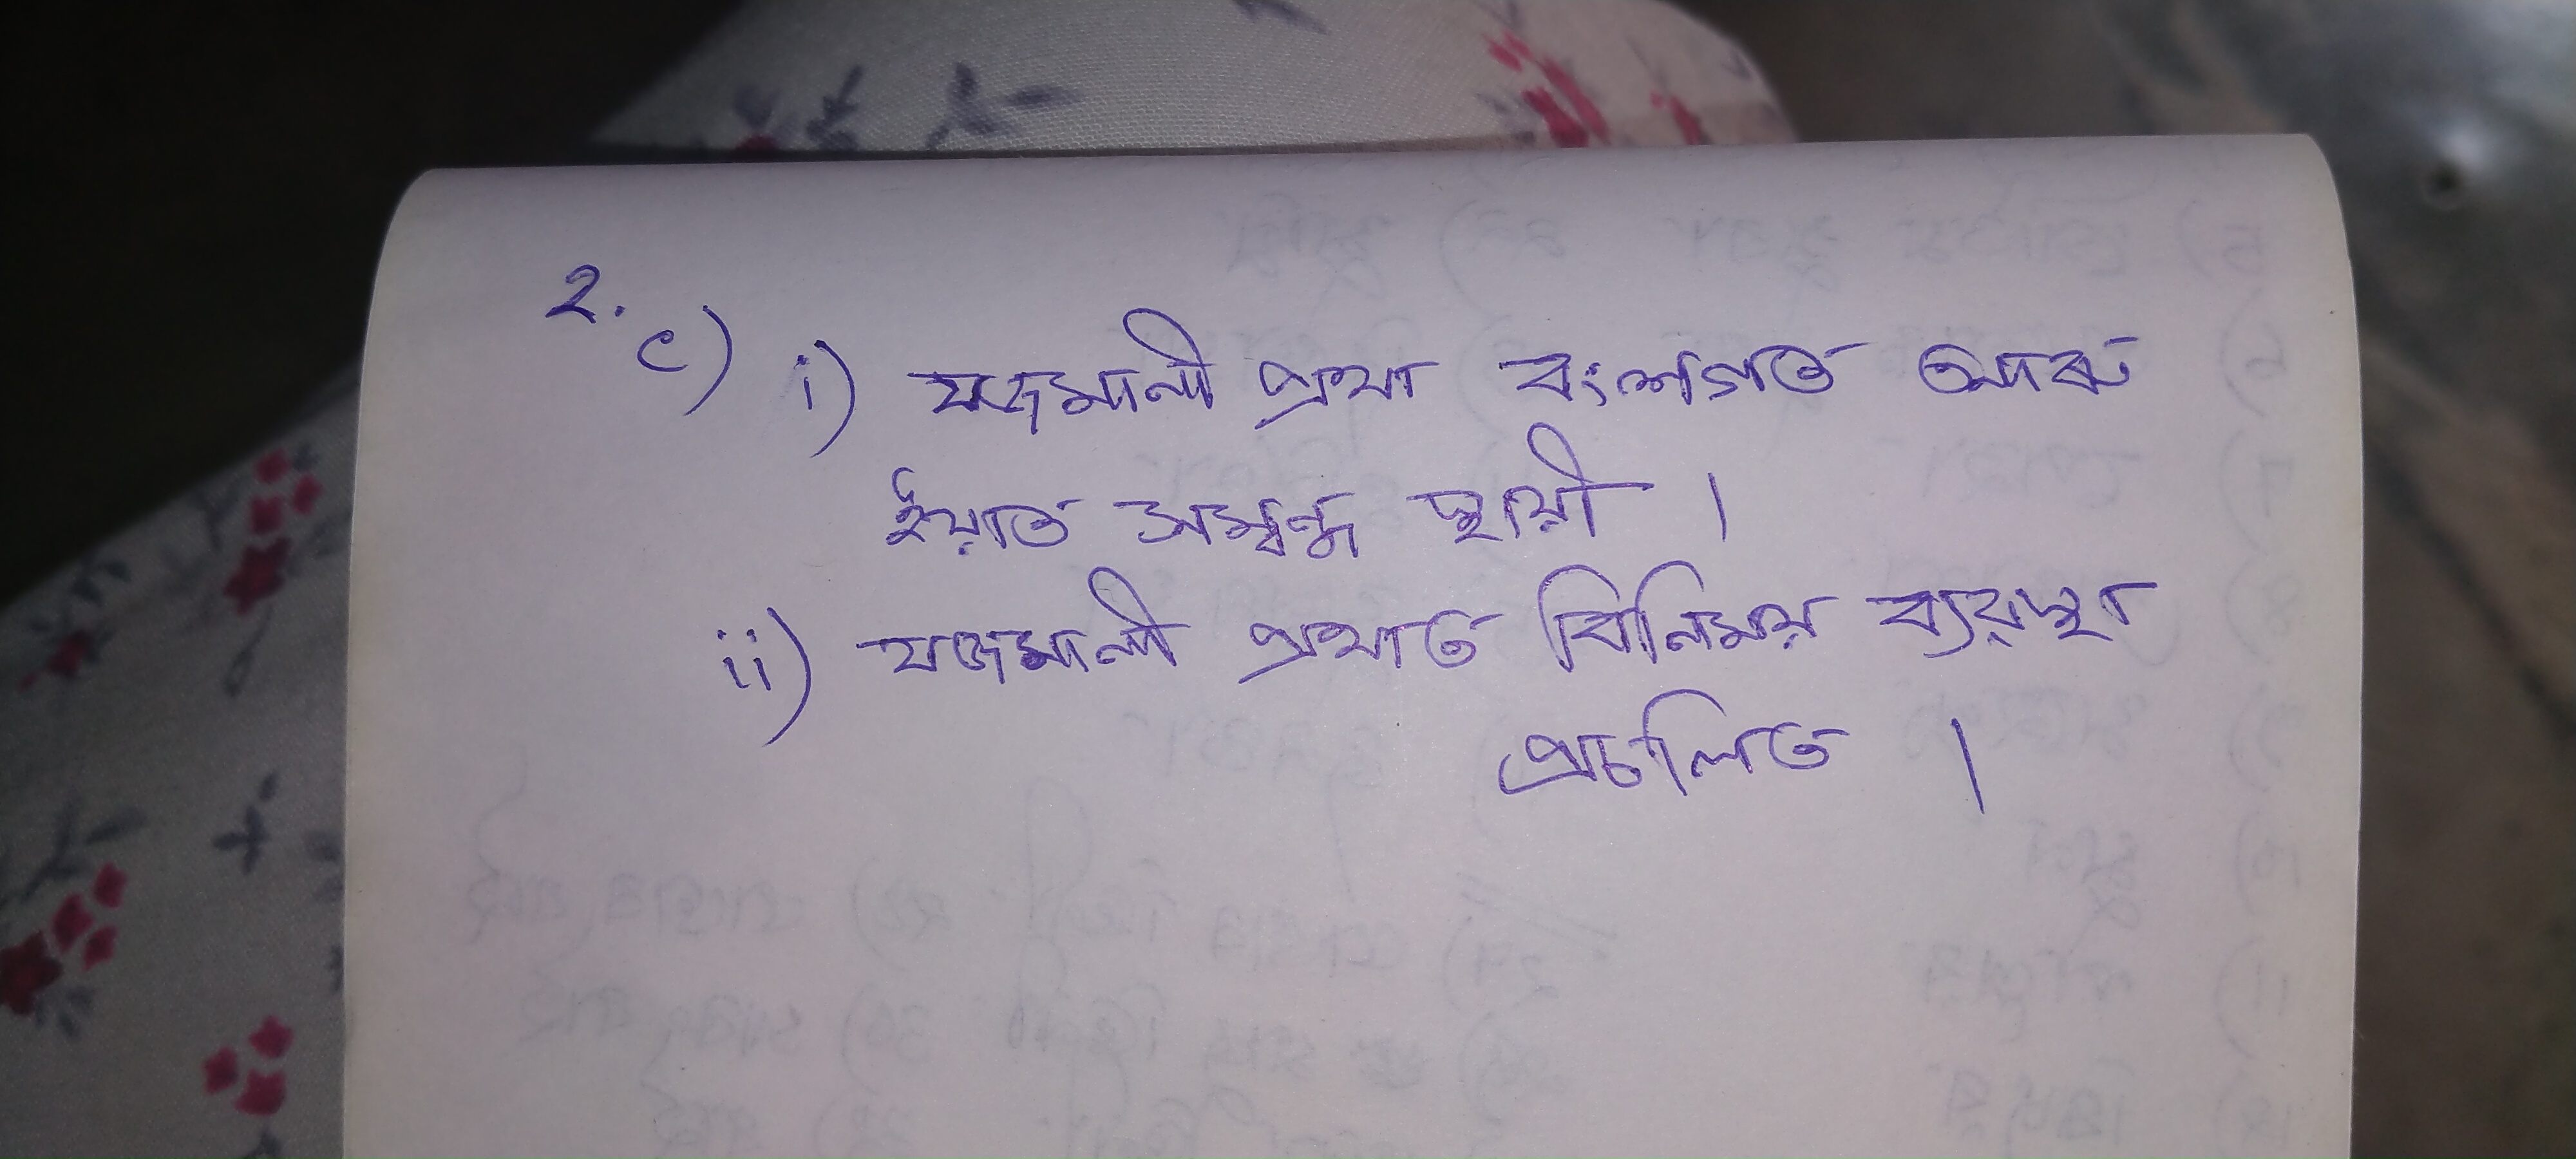 2.
c) i) যজমানী প্ৰথা বংশগত আৰু
ইয়াত সম্বন্ধ স্থায়ী ।
ii) যজমানী প্ৰথাত বিনিময় ব্যৱস্থা
প্ৰচলিত ।